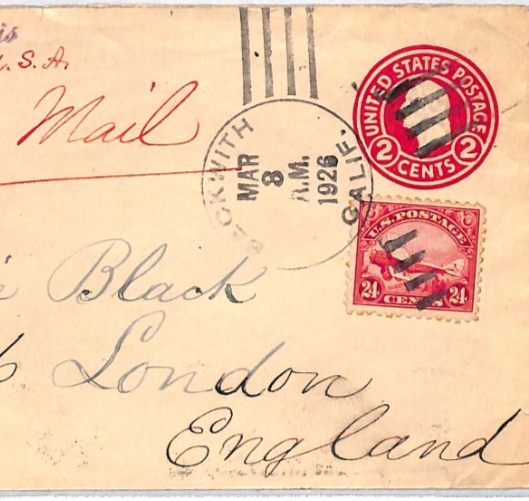 U.S.A.
Mail
BECKWITH CALIF.
MAR
8
A.M.
1926
UNITED STATES POSTAGE
2 CENTS 2
U.S. POSTAGE
24 CENTS 24
Black
London
England